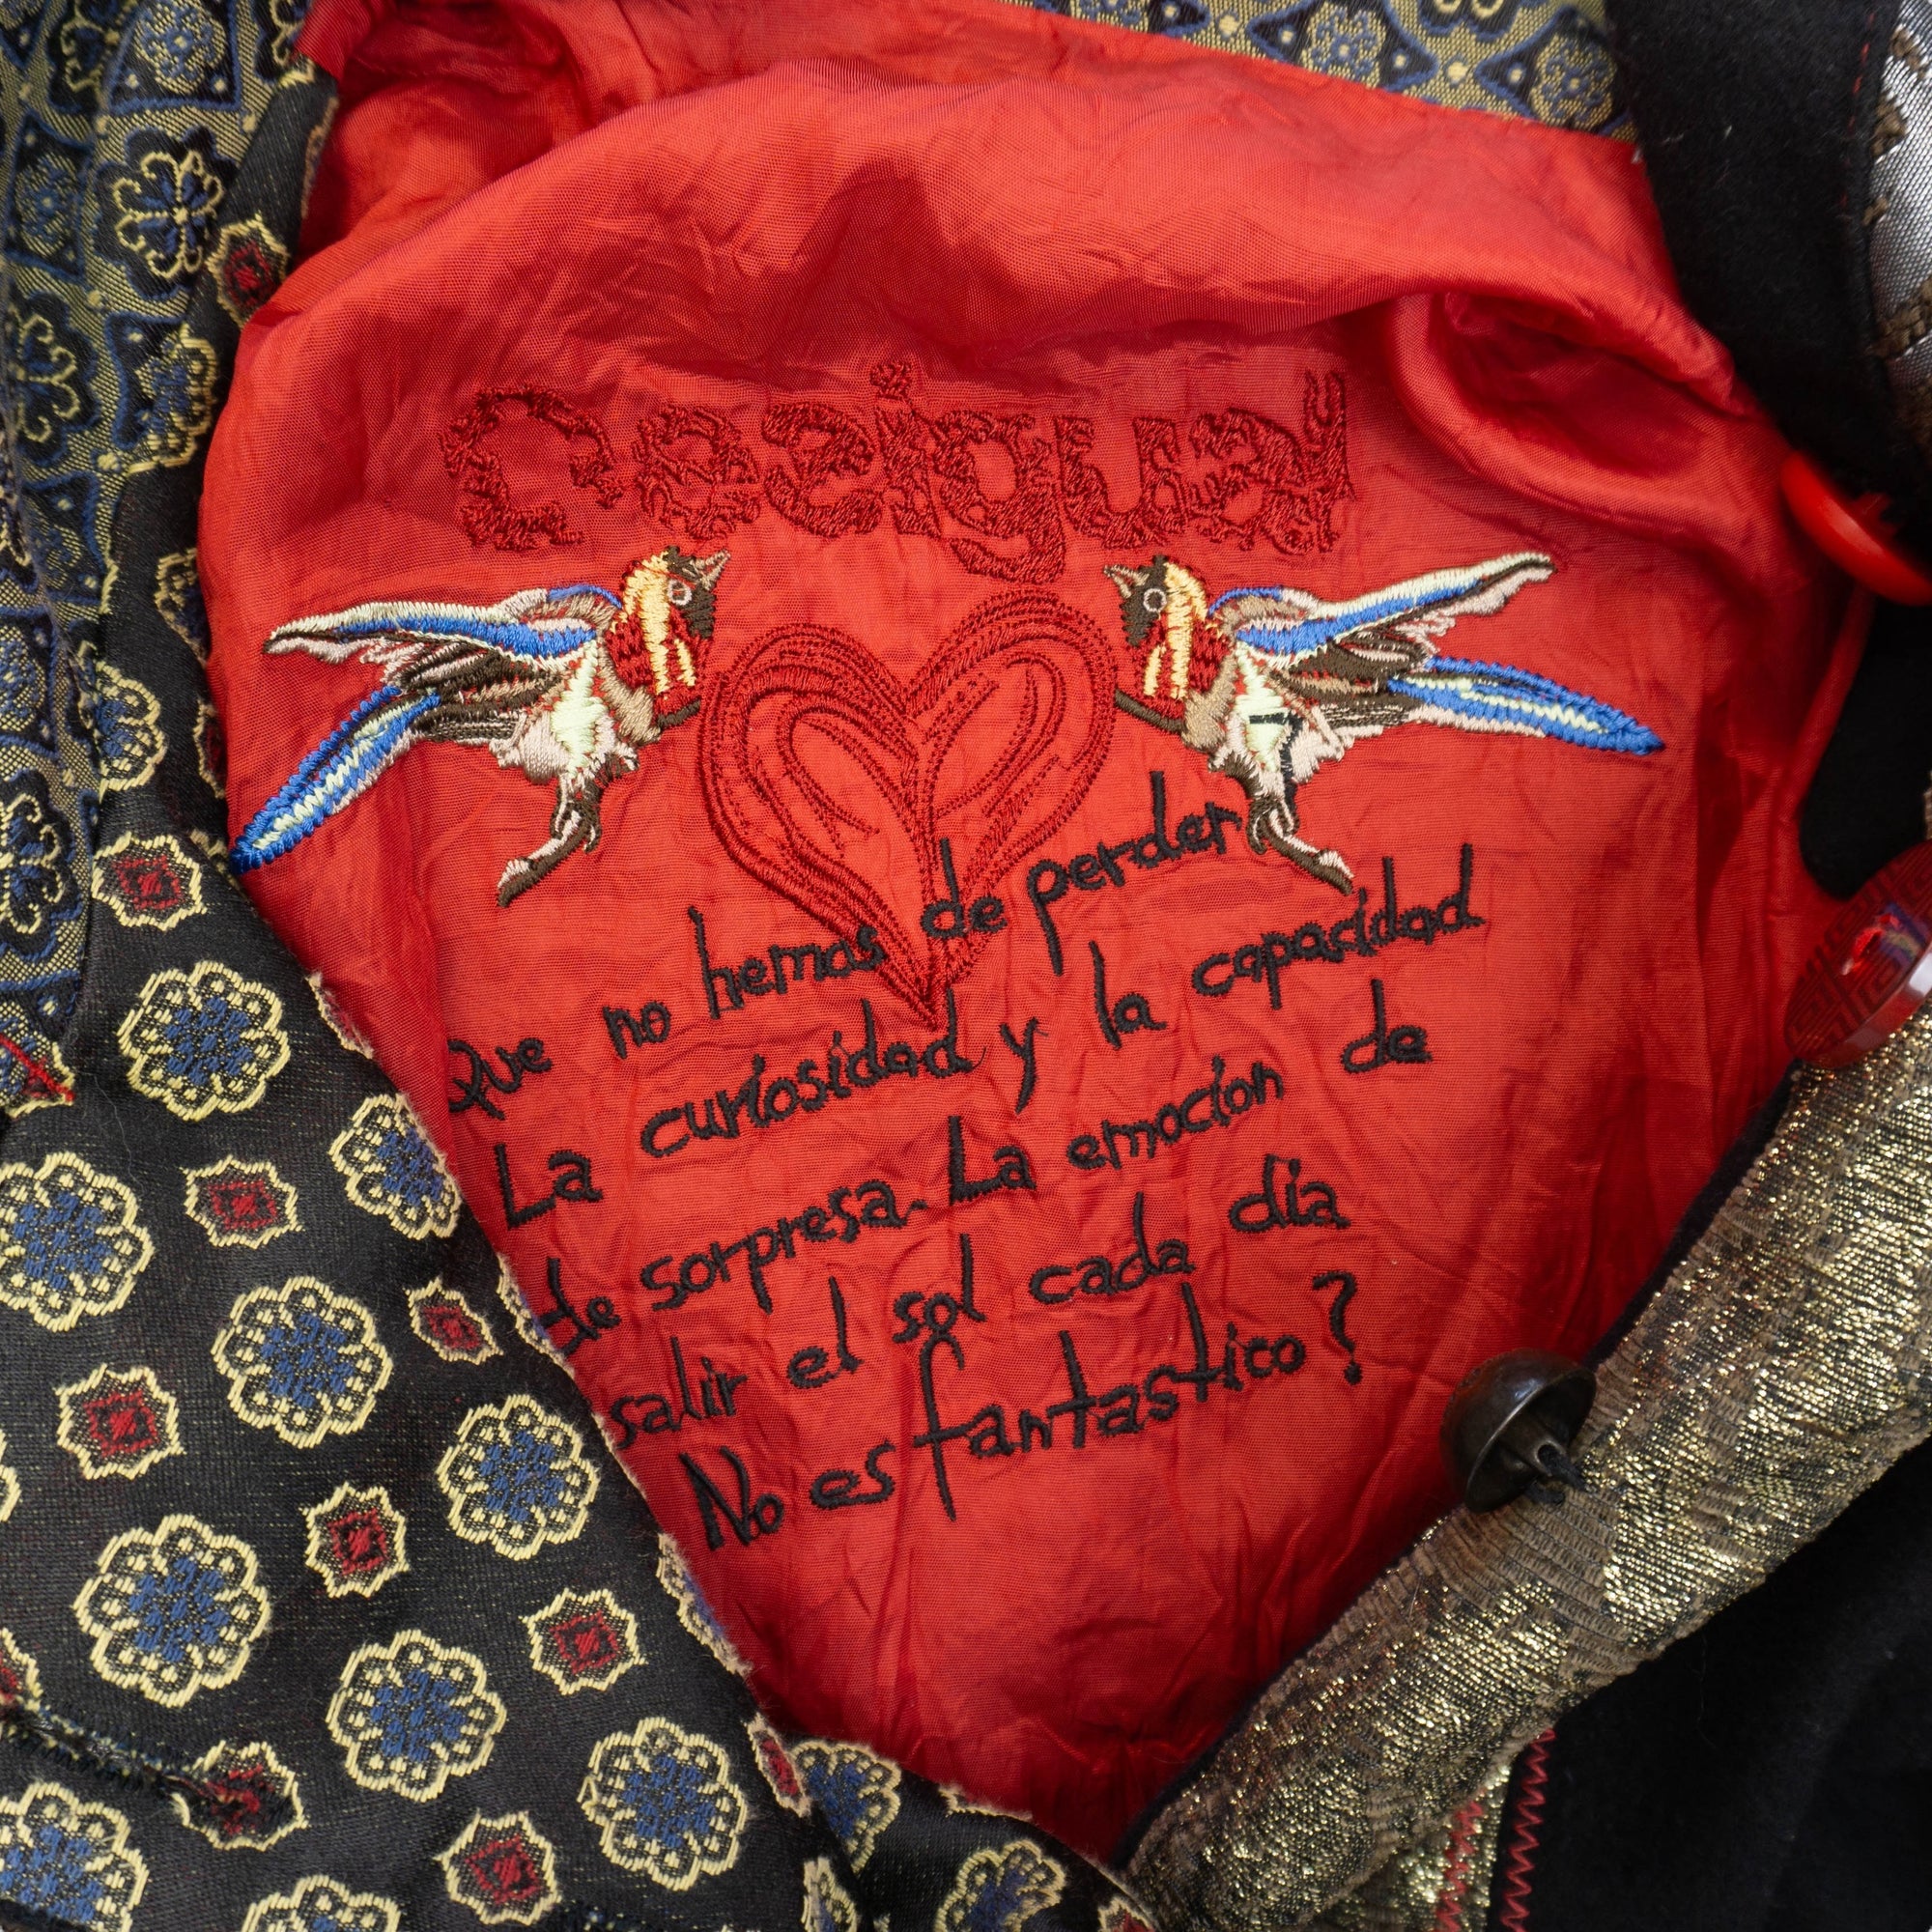 Desigual
Que no hemas de perder
La curiosidad y la capacidad
de sorpresa. La emocion de
salir el sol cada dia
No es fantastico?